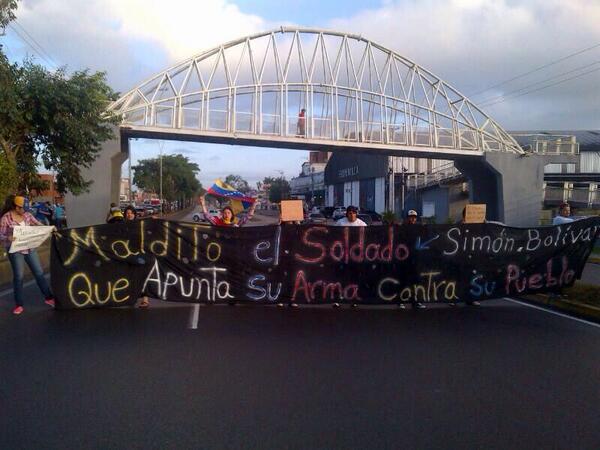 Maldito el Soldado Simón Bolívar
Que Apunta Su Arma Contra Su Pueblo